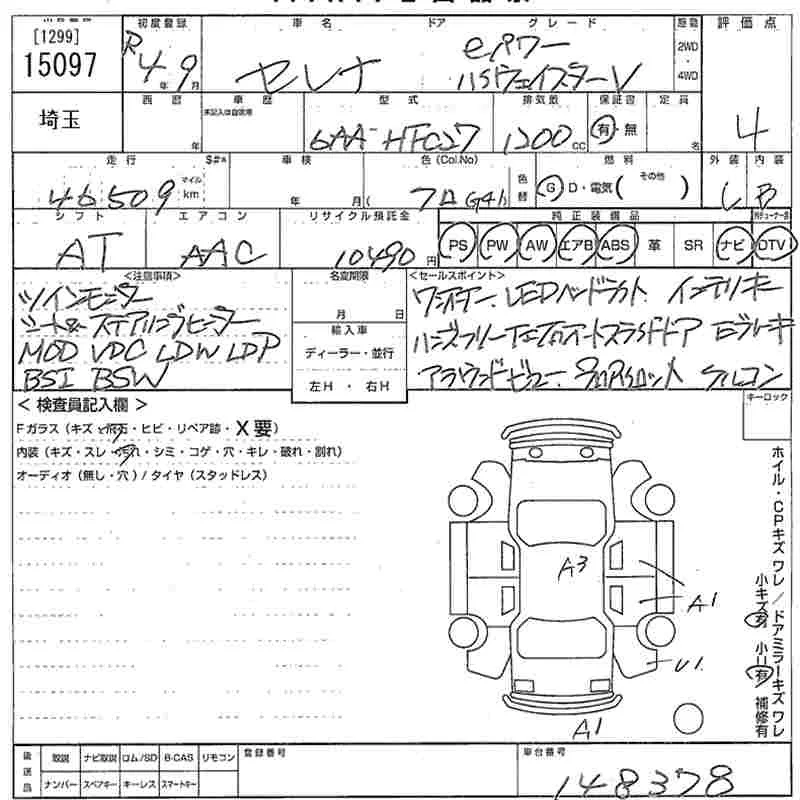 出品番号 初度登録 車名 ドア グレード 原動 評価点
[1299]
15097
R4年9月
セレナ
eパワー
ハイウェイスターV
2WD
・
4WD
4
埼玉
西暦 車歴 型式 排気量 保証書 定員
未記入は自家用
年
6AA-HFC27
1200cc
有・無
名
走行 S#* 車検 色(Col.No) 燃別 外装 内装
46509 マイル km
年 月(
クロ(G41)
色替
G D・電気( その他 )
L B
シフト エアコン リサイクル預託金 純正装備品
AT
AAC
10490円
PS PW AW エアB ABS 革 SR ナビ DTV
<注意事項>
ツインモニター
シート&ステアリングヒーター
MOD VDC LDW LDP
BSI BSW
名変期限
月 日
輸入車
ディーラー・並行
左H・右H
<セールスポイント>
ワンオーナー LEDヘッドライト インテリキー
ハンズフリー オートスライドドア Eブレーキ
アラウンドビュー プロパイロット クルコン
<検査員記入欄>
Fガラス(キズ・飛石・ヒビ・リペア跡・X要)
内装(キズ・スレ・汚れ・シミ・コゲ・穴・キレ・破れ・割れ)
オーディオ(無し・穴)/タイヤ(スタッドレス)
キーロック
ホイル・CPキズ ワレ/ドアミラーキズ ワレ
小キズ有 小U有 補修有
A3
A1
U1
A1
後送品
取説 ナビ取説 ロム/SD B-CAS リモコン
ナンバー スペアキー キーレス スマートキー
登録番号
車台番号
148378